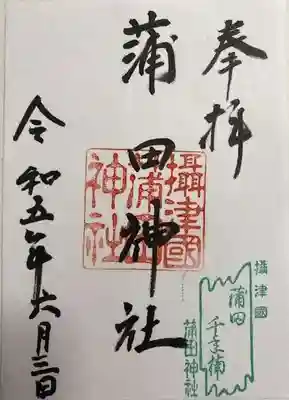 奉拝
蒲田神社
攝津國
蒲田
神社
令和五年六月三日
攝津國
蒲田
蒲田神社